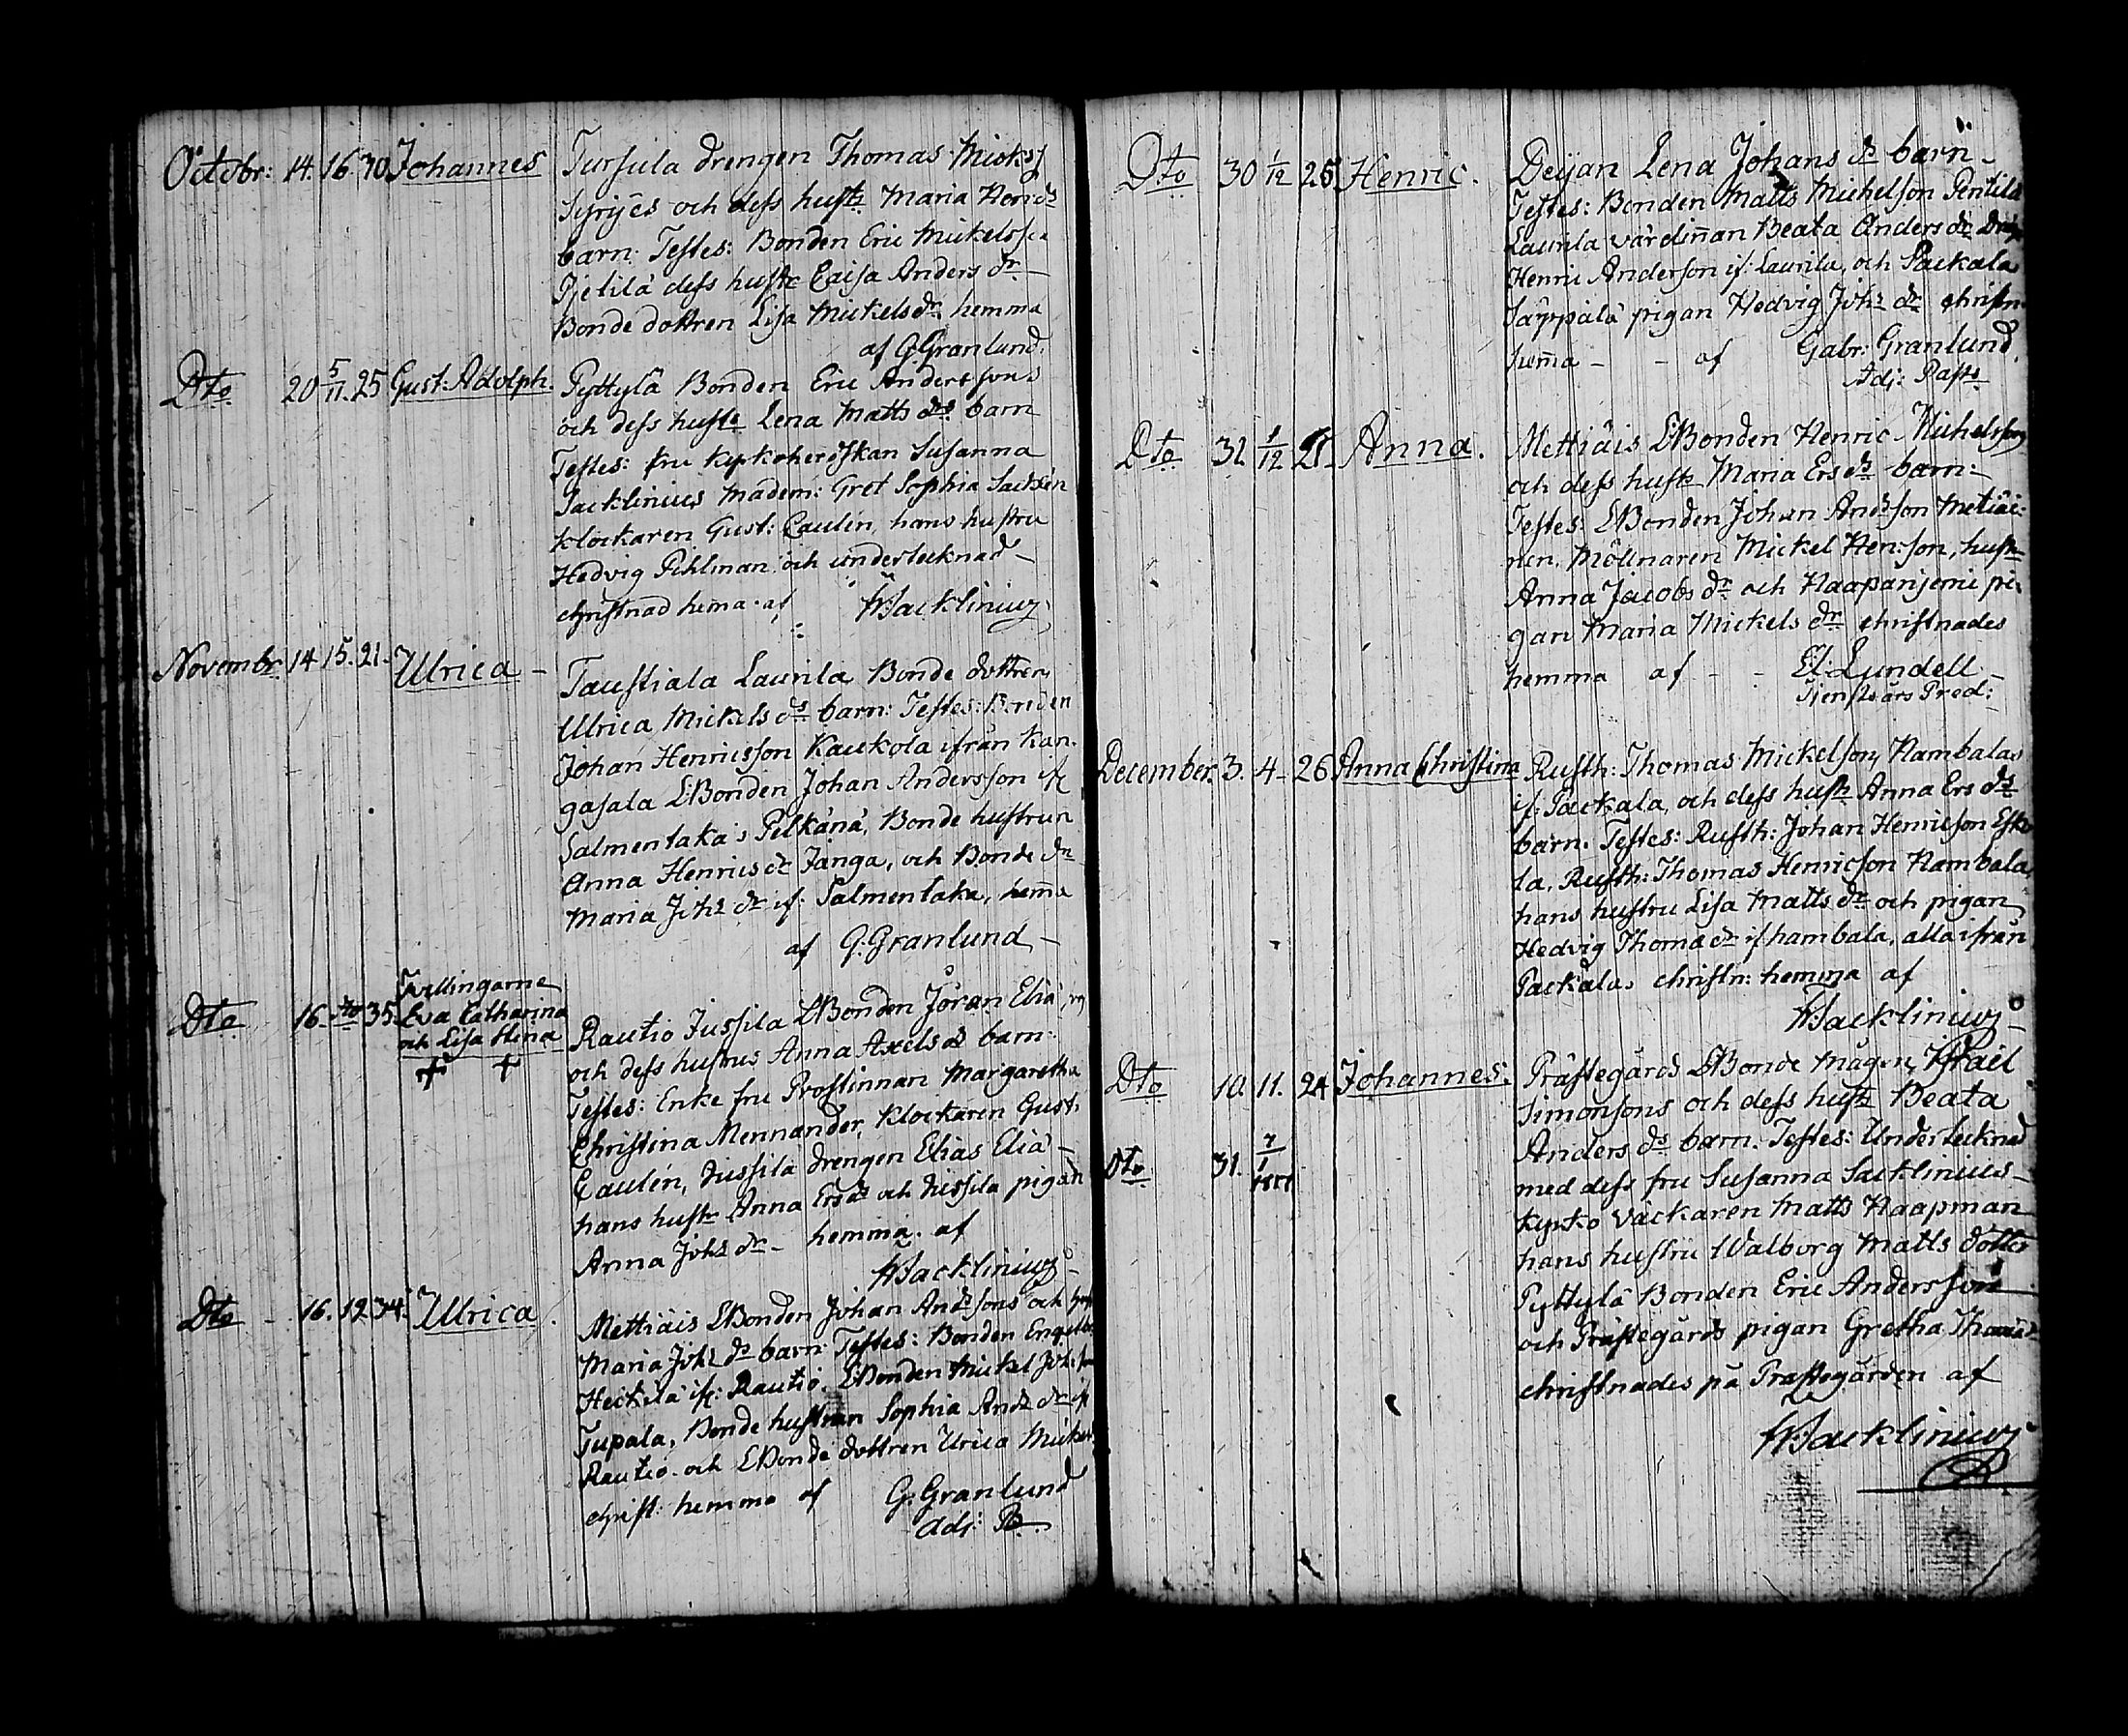 Octobr: 14. 16. 30 Johannes Tursula drengen Thomas Micks:
Syrjes och dess hust: Maria Henr: dr
barn. Testes: Bonden Eric Mickelsson
Pjetilä dess hustr Caisa Anders dr
Bonde dottren Lisa Mickels dr hemma
af G. Granlund.
Dto 20 5/11. 25 Gust: Adolph. Pyttylä Bonden Eric Anderssons
och dess hustr Lena Matts drs barn
Testes: fru Kyrkoherdskan Susanna
Sacklinius Madem: Gret Sophia Sacklen
Klockaren Gust: Caulén, hans hustru
Hedvig Pihlman och undertecknad
christnad hema. af Sacklinius
Novembr. 14 15. 21. Ulrica – Taustiala Laurila Bonde dottren
Ulrica Mickels ds barn: Testes: Bonden
Johan Henricsson Kaukola ifrån Kan-
gasala LBonden Johan Andersson if
Salmentaka i Pelkänä, Bonde hustrun
Anna Henrics dr Janga, och Bonde dr
Maria Joh: dr if: Salmentaka, hema
af G: Granlund –
Dto 16. dto 35. Tvillingarne
Eva Catharina
och Lisa Stina
+ +
Rautio Jussila LBonden Jöran Elia
och dess hustrus Anna Axels ds barn:
Testes: Enke fru Prostinnan Margaretha
Christina Mennander, Klockaren Gust:
Caulén, Jussila drengen Elias Elia –
hans hustr Anna Ers dr och Jussila pigan
Anna Joh: dr – hemma. af
Sacklinius
Dto – 16. 19 34. Ulrica. Mettiäis LBonden Johan And: sons och
Maria Joh: ds barn: Testes: Bonden
Heckilä if: Rautio. LBonden Mickel Joh:
Tupala, Bonde hustrun Sophia And: dr if
Rautio. och LBonde dottren Ulrica Mickels
christ: hemma af G: Granlund
Adj: P.
Dto 30 1/12 25 Henric. Deijan Lena Johans ds barn –
Testes: Bonden Matts Michelson Pentilä
Laurila värdinnan Beata Anders dr
Henric Anderson if: Laurila, och Packala
Säppälä pigan Hedvig Joh: dr christn
hema – – af Gabr: Granlund,
Adj: Past:
Dto 31 1/12 Anna. Mettiäis LBonden Henric Michelssons
och dess hustr Maria Ers ds barn:
Testes: LBonden Johan Andrson Metiäi-
nen. Möllnaren Mickel Hen:son, hustr
Anna Jacobs dr och Haapanjemi pi-
gan Maria Mickels dr christnades
hemma af – – El: Lundell –
Tjenstgörs Pred:
December. 3. 4. 26. Anna Christina Rusth: Thomas Mickelsons Hambalas
if: Packala, och dess hustr Anna Ers ds
barn. Testes: Rusth: Johan Henricson Esko-
la, Rusth: Thomas Henricson Hambala
hans hustru Lisa Matts dr och pigan
Hedvig Thoma dr if hambala, alla ifrån
Packala. christn: hemma af
Sacklinius
Dto 10. 11. 24 Johannes. Prästegårds LBonde mågen Israel
Simonsons och dess hustr Beata
Anders ds barn. Testes: Undertecknad
Dto 31. 7/1
med dess fru Susanna Sacklinius –
Kyrko väckaren Matts Haapman
hans hustru Walborg Matts dotter
Pyttylä Bonden Eric Andersson
och Prästegårds pigan Gretha Thoma dr
christnades på Prästegården af
Sacklinius